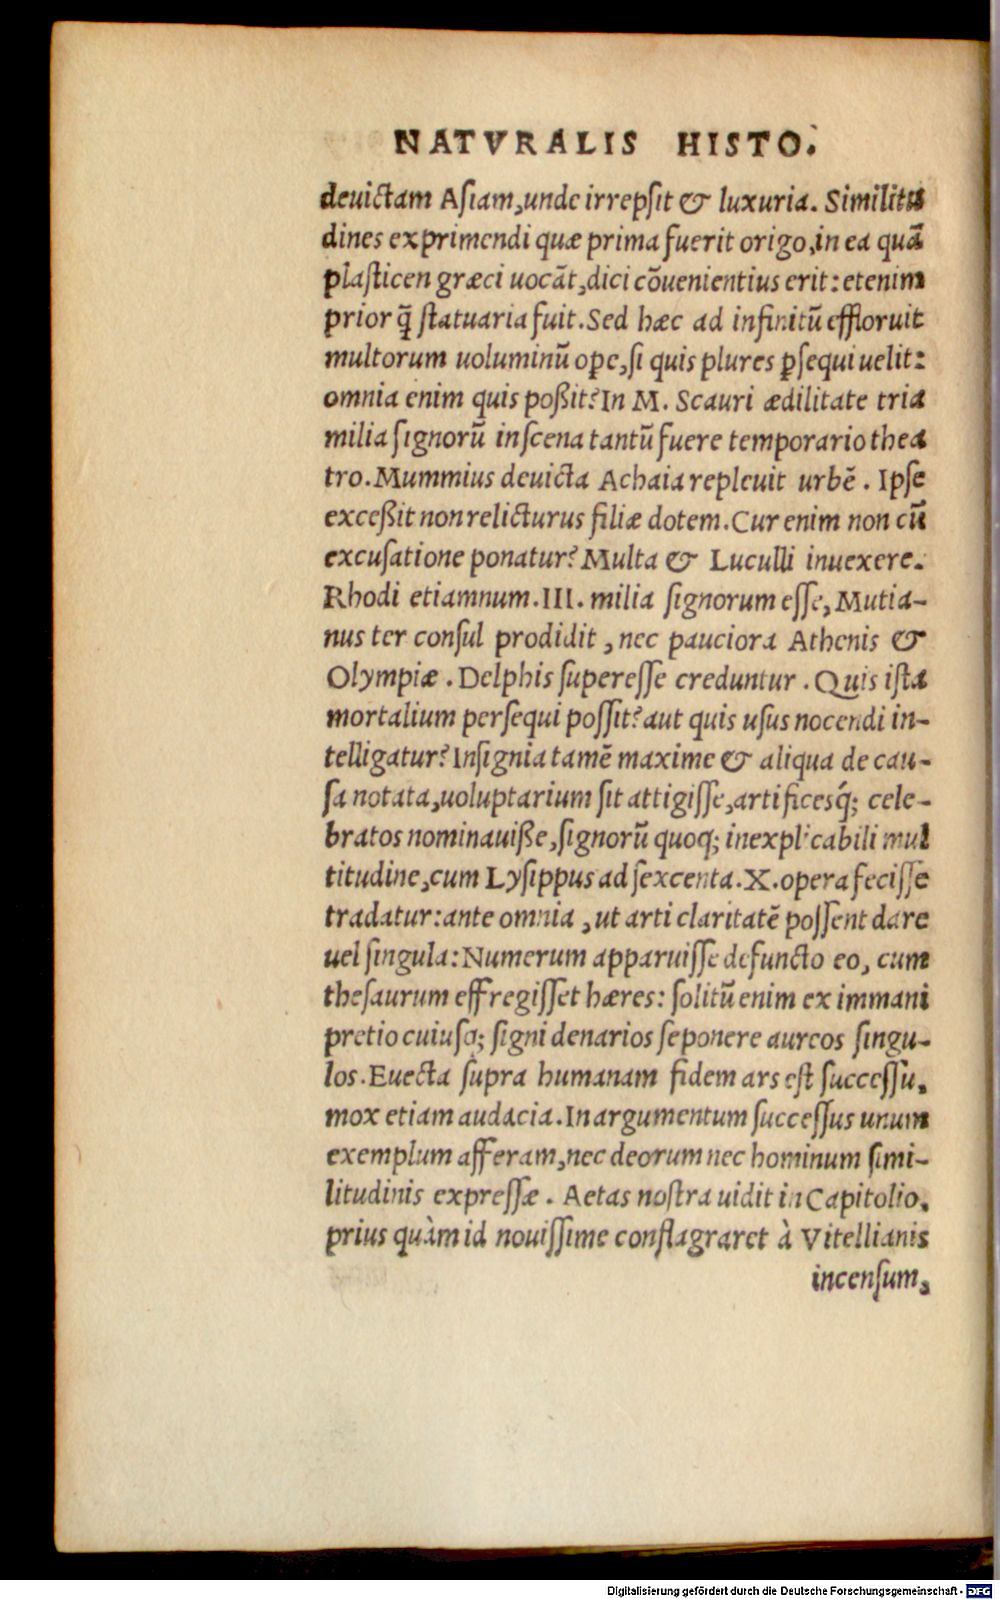 NATVRALIS HISTO.
deuictam Asiam, unde irrepsit & luxuria. Similitu
dines exprimendi quæ prima fuerit origo, in ea quā
plasticen græci uocāt, dici cōuenientius erit: etenim
prior q̄ statuaria fuit. Sed hæc ad infinitū effloruit
multorum uoluminū ope, si quis plures ꝑsequi uelit:
omnia enim quis poßit? In M. Scauri ædilitate tria
milia signorū in scena tantū fuere temporario thea
tro. Mummius deuicta Achaia repleuit urbē. Ipse
exceßit non relicturus filiæ dotem. Cur enim non cū
excusatione ponatur? Multa & Luculli inuexere.
Rhodi etiamnum. III. milia signorum esse, Mutia-
nus ter consul prodidit, nec pauciora Athenis &
Olympiæ. Delphis superesse creduntur. Quis ista
mortalium persequi possit? aut quis usus nocendi in-
telligatur? Insignia tamē maxime & aliqua de cau-
sa notata, uoluptarium sit attigisse, artificesq́; cele-
bratos nominauiße, signorū quoq; inexplicabili mul
titudine, cum Lysippus ad sexcenta. X. opera fecisse
tradatur: ante omnia, ut arti claritatē possent dare
uel singula: Numerum apparuisse defuncto eo, cum
thesaurum effregisset hæres: solitū enim ex immani
pretio cuiusq; signi denarios seponere aureos singu-
los. Euecta supra humanam fidem ars est successu,
mox etiam audacia. In argumentum successus unum
exemplum afferam, nec deorum nec hominum simi-
litudinis expressæ. Aetas nostra uidit in Capitolio,
prius quàm id nouissime conflagraret à Vitellianis
incensum,
Digitalisierung gefördert durch die Deutsche Forschungsgemeinschaft - DFG